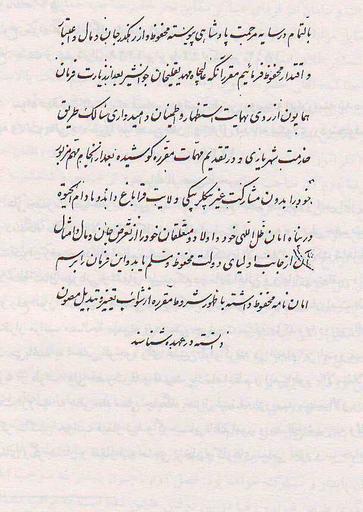 بالتمام در سایه مرحمت پادشاهی پیوسته محفوظ و از رهگذر جان و مال و اعتبار
و اقتدار محفوظ فرمائیم مقرر آنکه عالیجاه مهدیقلیخان جوانشیر بعد از زیارت فرمان
همایون از روی نهایت استظهار و اطمینان و امیدواری سالک طریق
خدمت شهریاری و در تقدیم مهمات مقرره کوشیده بعد از انجام مهم مزبور
خود را بدون مشارکت غیر بیگلربیگی ولایت قراباغ داند و مادام الحیوة
در پناه امان ظل اللهی خود و اولاد و متعلقان خود را از تعرض جان و مال و امثال
آن از جانب اولیای دولت محفوظ و مسلم یابد و این فرمان را برسم
امان نامه محفوظ داشته با ظهور شروط مقرره از شوائب تغییر و تبدیل مصون
دانسته در عهده شناسد